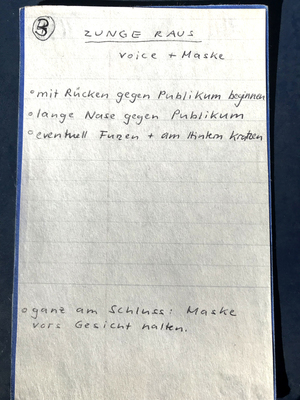 5
ZUNGE RAUS
voice + Maske
° mit Rücken gegen Publikum beginnen
° lange Nase gegen Publikum
° eventuell Furzen + am Hintern kratzen
° ganz am Schluss: Maske
vors Gesicht halten.